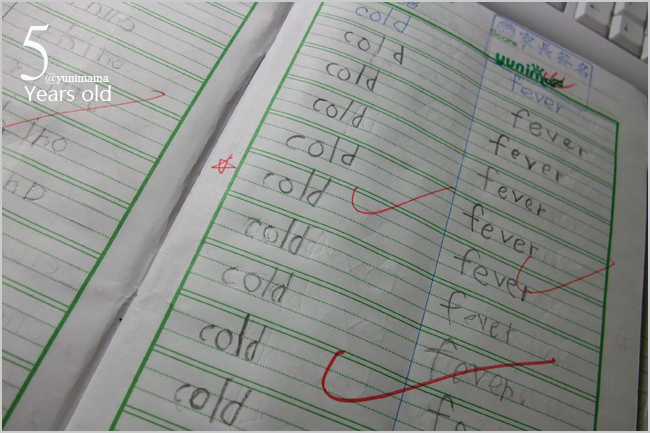 5
@yunimama
Years old
cold
cold
cold
cold
cold
cold
cold
cold
cold
cold
家長簽名
fever
fever
fever
fever
fever
fever
fever
fever